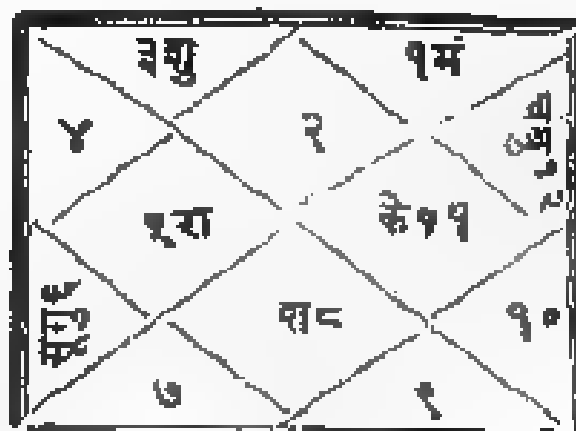 ३शु
१मं
४
२
५रा
के११
सूगु६
श८
१०
७
९